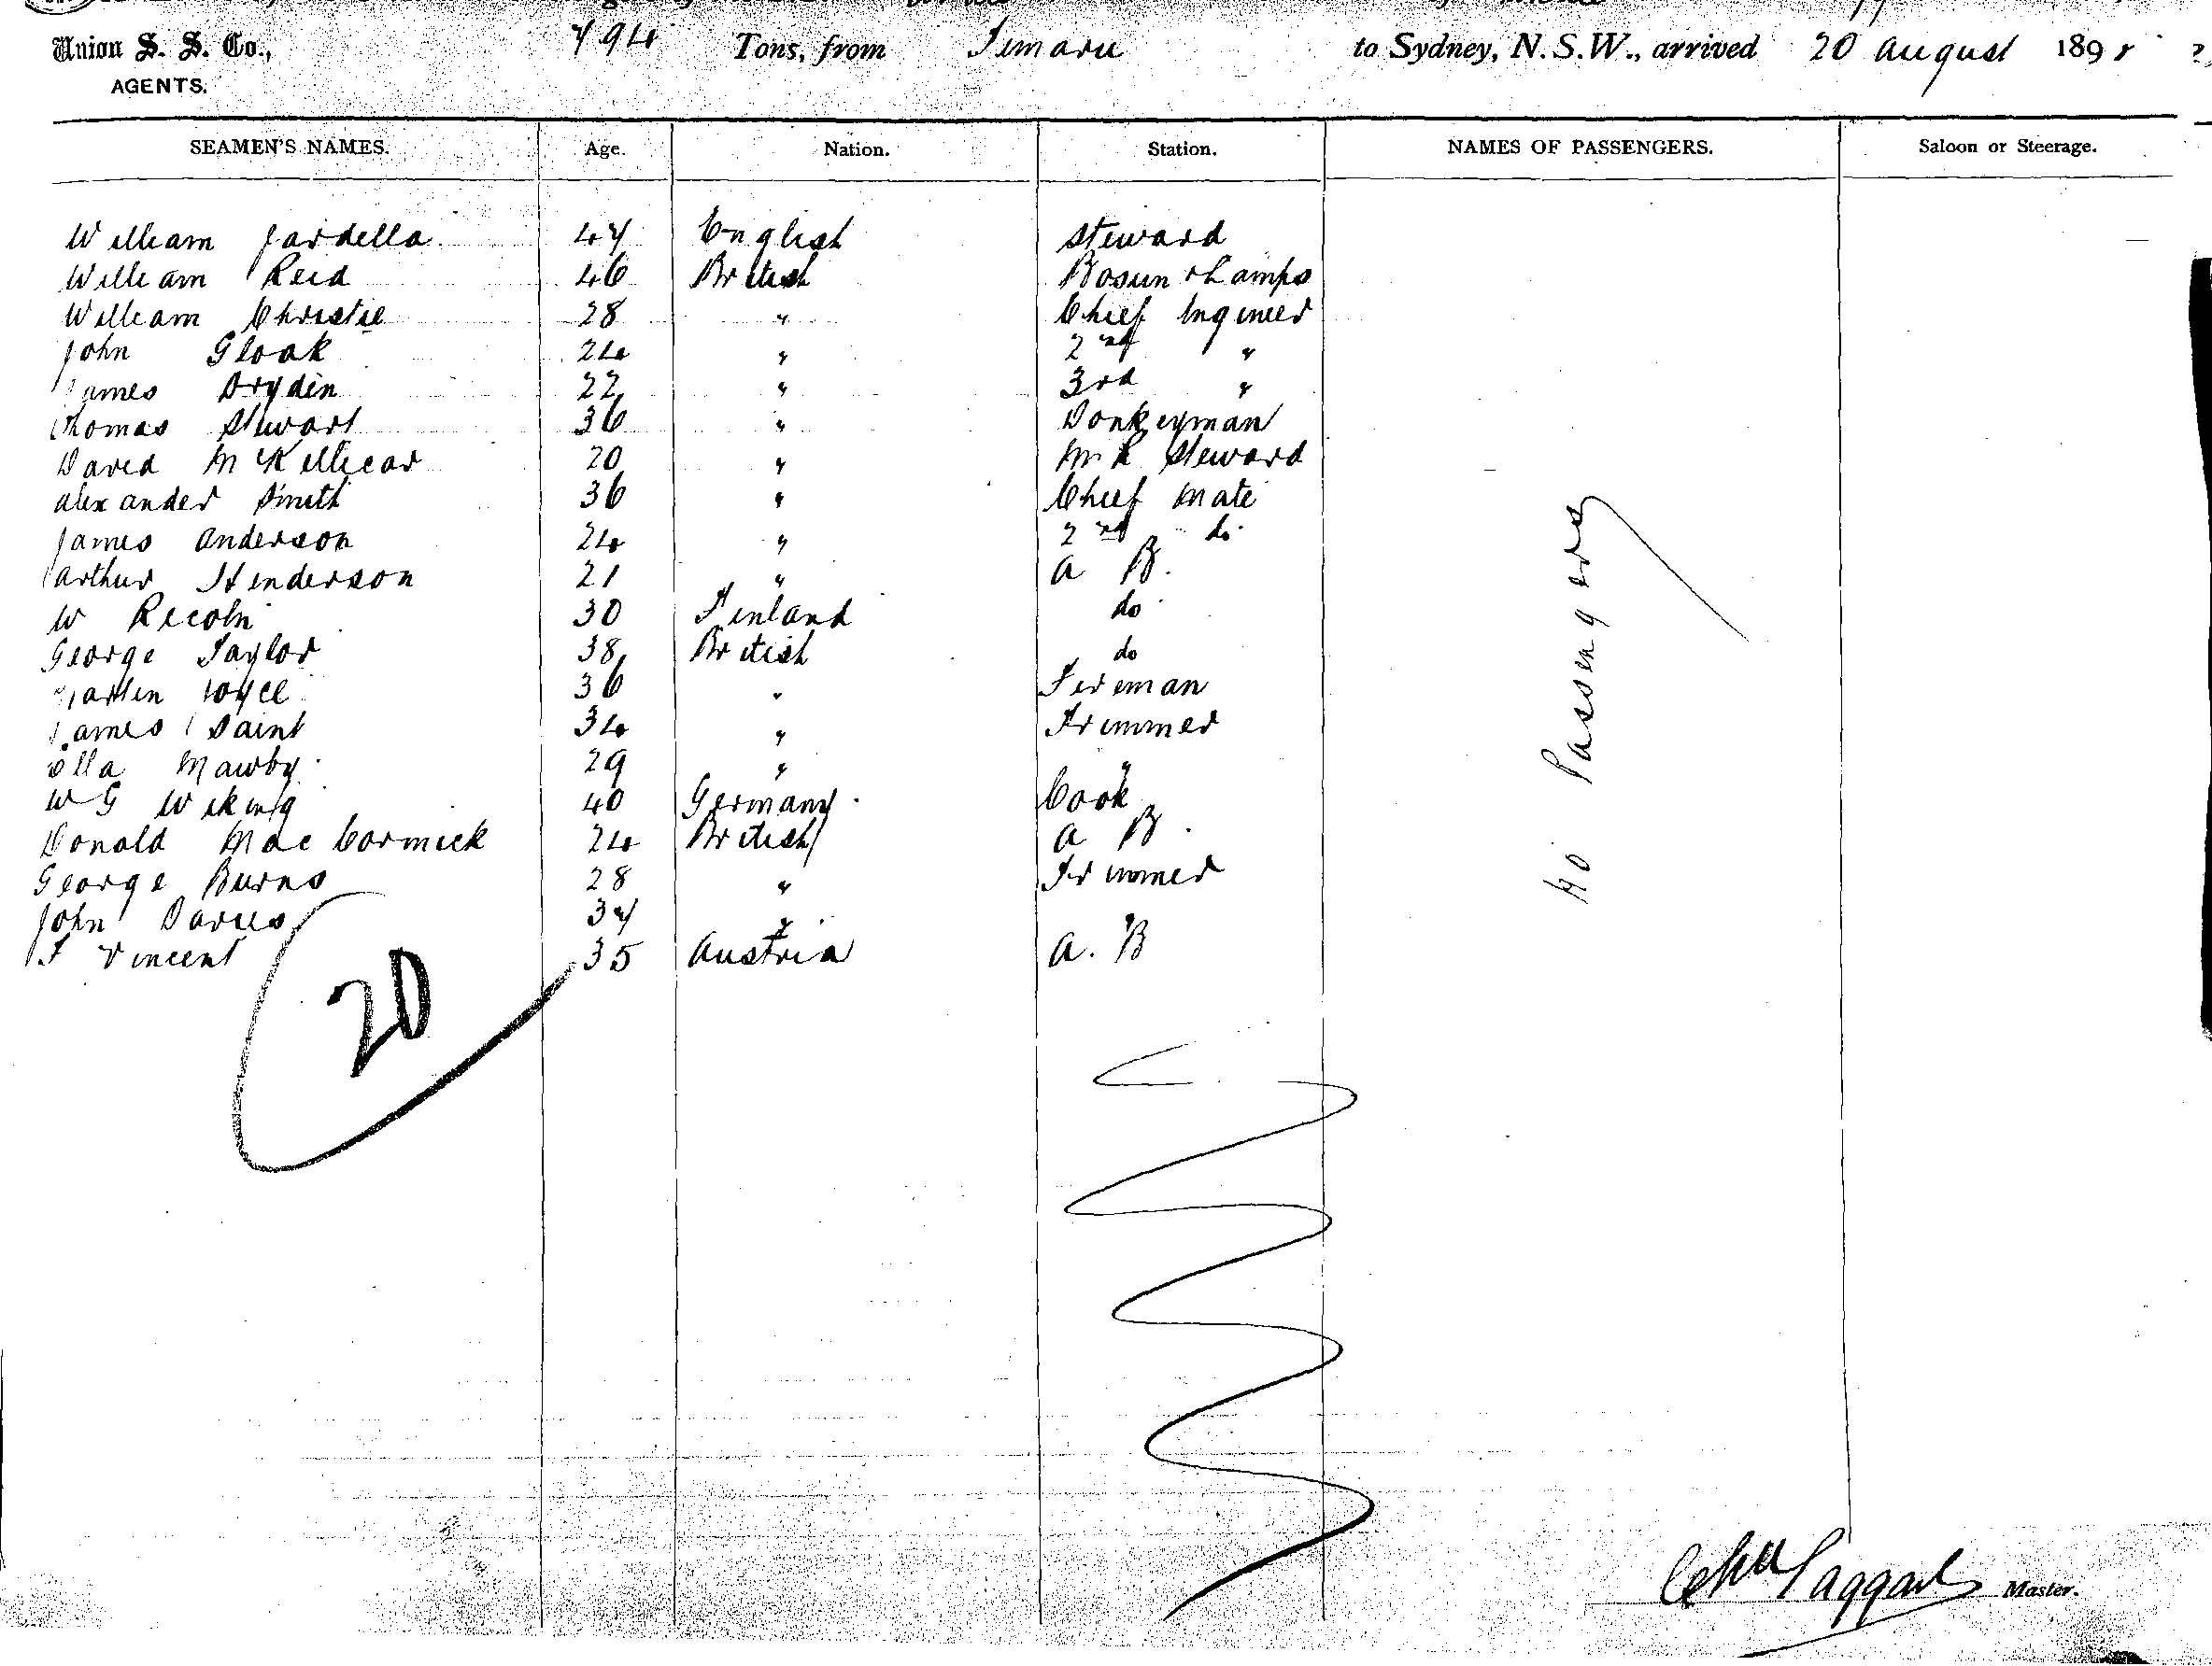 Union S. S. Co., 794 Tons, from Timaru to Sydney, N.S.W., arrived 20 August 189
AGENTS.
SEAMEN'S NAMES. Age. Nation. Station. NAMES OF PASSENGERS. Saloon or Steerage.
William Jardella 47 English Steward
William Reid 46 British Bosun & Lamps
William Christie 28 " Chief Engineer
John Gloak 24 " 2nd "
James Dryden 22 " 3rd "
Thomas Stewart 36 " Donkeyman
David McKellicar 20 " M R Steward
Alexander Smith 36 " Chief Mate
James Anderson 24 " 2nd do
Arthur Henderson 21 " A B.
W 30 Finland do
George Taylor 38 British do
Martin Joyce 36 " Fireman
James Saint 34 " Trimmer
Mawby 29 " "
W G Wiking 40 Germany Cook
Donald MacCormick 24 British A B.
George Burns 28 " Trimmer
John Davies 37 " "
F Vincent 35 Austria A. B
No Passengers
20
Taggart Master.